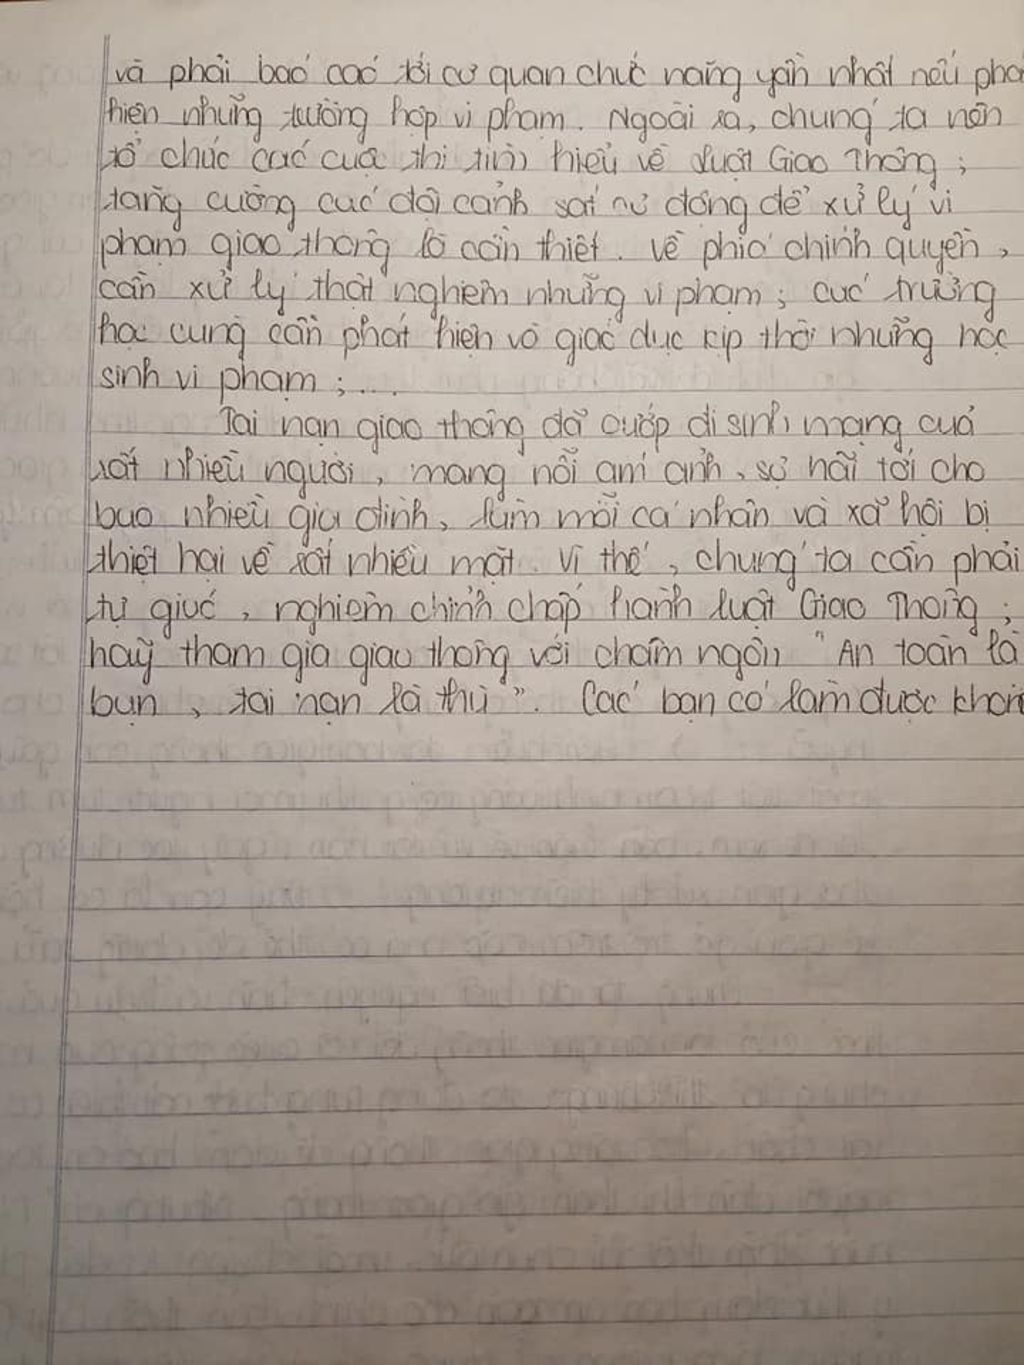 và phải báo cáo tới cơ quan chức năng gần nhất nếu phá
hiện những trường hợp vi phạm. Ngoài ra, chúng ta nên
tổ chức các cuộc thi tìm hiểu về Luật Giao Thông ;
tăng cường các đội cảnh sát cơ động để xử lý vi
phạm giao thông là cần thiết. Về phía chính quyền,
cần xử lý thật nghiêm những vi phạm ; các trường
học cũng cần phát hiện và giáo dục kịp thời những học
sinh vi phạm ; ....
Tai nạn giao thông đã cướp đi sinh mạng của
rất nhiều người, mang nỗi ám ảnh, sợ hãi tới cho
bao nhiều gia đình, làm mỗi cá nhân và xã hội bị
thiệt hại về rất nhiều mặt. Vì thế, chúng ta cần phải
tự giác, nghiêm chỉnh chấp hành luật Giao Thông ;
hãy tham gia giao thông với châm ngôn "An toàn là
bạn, tai nạn là thù". Các bạn có làm được khôn